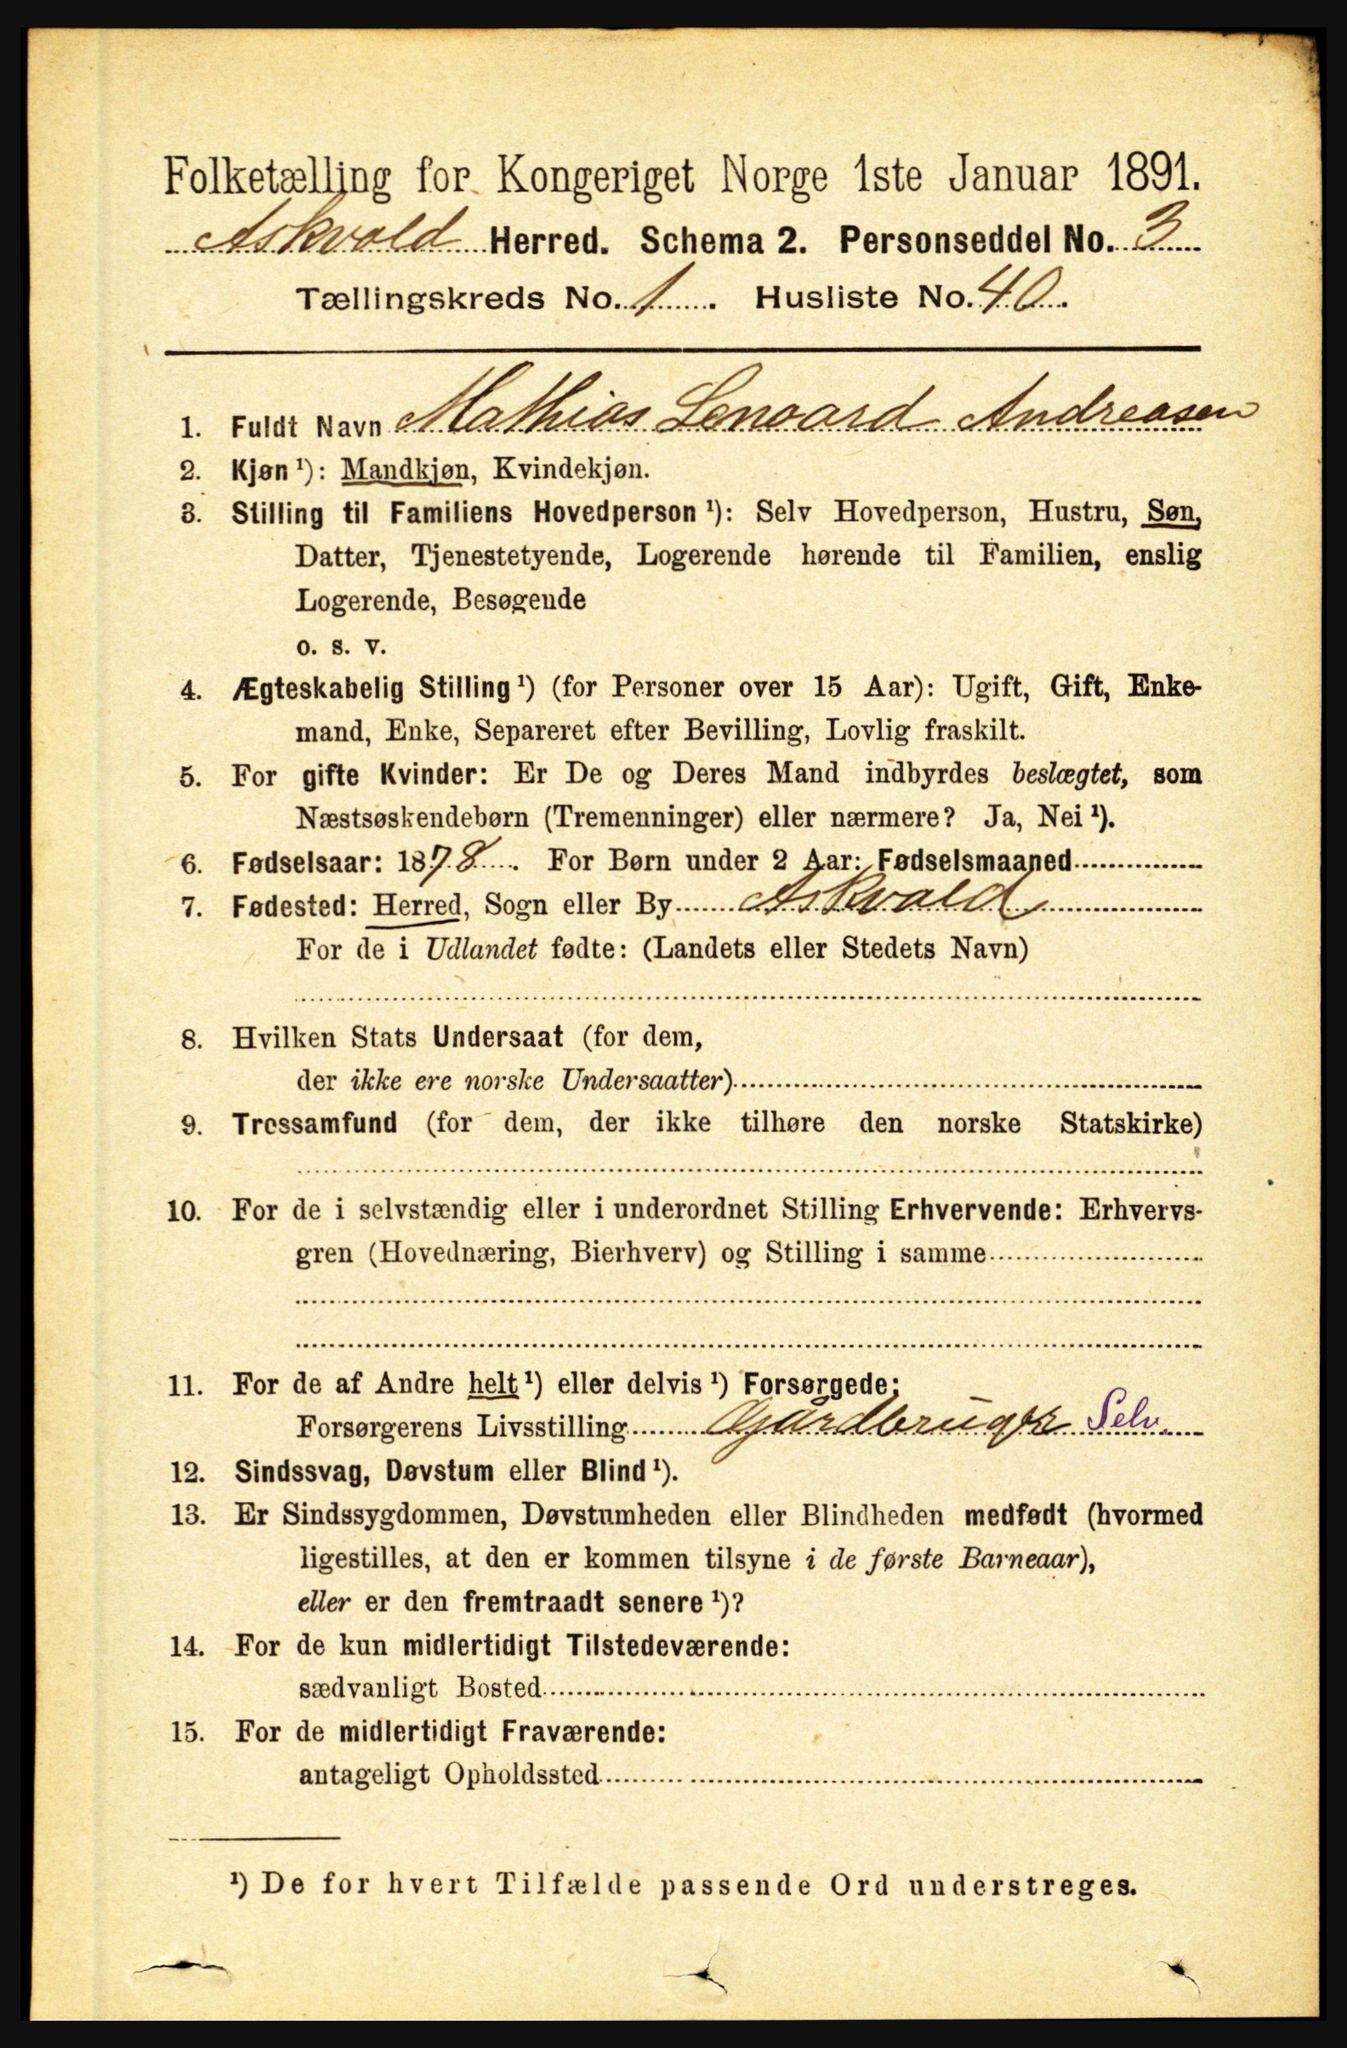 Folketælling for Kongeriget Norge 1ste Januar 1891.
Askvold Herred. Schema 2. Personseddel No. 3
Tællingskreds No. 1. Husliste No. 40.
1. Fuldt Navn Mathias Lenoard Andreasen
2. Kjøn ¹): Mandkjøn, Kvindekjøn.
3. Stilling til Familiens Hovedperson ¹): Selv Hovedperson, Hustru, Søn,
Datter, Tjenestetyende, Logerende hørende til Familien, enslig
Logerende, Besøgende
o. s. v.
4. Ægteskabelig Stilling ¹) (for Personer over 15 Aar): Ugift, Gift, Enke-
mand, Enke, Separeret efter Bevilling, Lovlig fraskilt.
5. For gifte Kvinder: Er De og Deres Mand indbyrdes beslægtet, som
Næstsøskendebørn (Tremenninger) eller nærmere? Ja, Nei ¹).
6. Fødselsaar: 1878. For Børn under 2 Aar: Fødselsmaaned
7. Fødested: Herred, Sogn eller By Askvold
For de i Udlandet fødte: (Landets eller Stedets Navn)
8. Hvilken Stats Undersaat (for dem,
der ikke ere norske Undersaatter)
9. Trossamfund (for dem, der ikke tilhøre den norske Statskirke)
10. For de i selvstændig eller i underordnet Stilling Erhvervende: Erhvervs-
gren (Hovednæring, Bierhverv) og Stilling i samme
11. For de af Andre helt ¹) eller delvis ¹) Forsørgede:
Forsørgerens Livsstilling Gårdbruger Selv.
12. Sindssvag, Døvstum eller Blind ¹).
13. Er Sindssygdommen, Døvstumheden eller Blindheden medfødt (hvormed
ligestilles, at den er kommen tilsyne i de første Barneaar),
eller er den fremtraadt senere ¹)?
14. For de kun midlertidigt Tilstedeværende:
sædvanligt Bosted
15. For de midlertidigt Fraværende:
antageligt Opholdssted
¹) De for hvert Tilfælde passende Ord understreges.